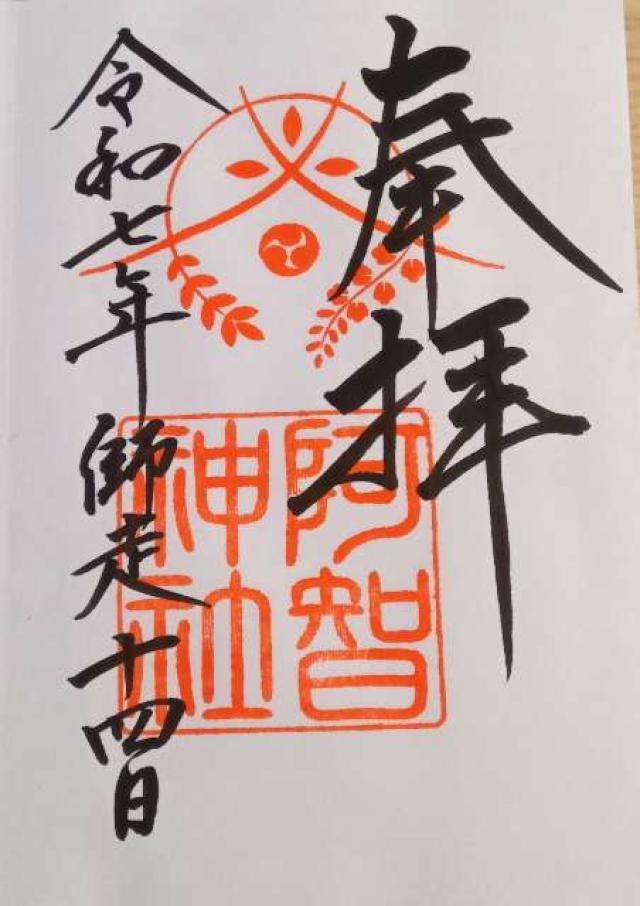 奉拝
阿智
神社
令和七年師走十四日